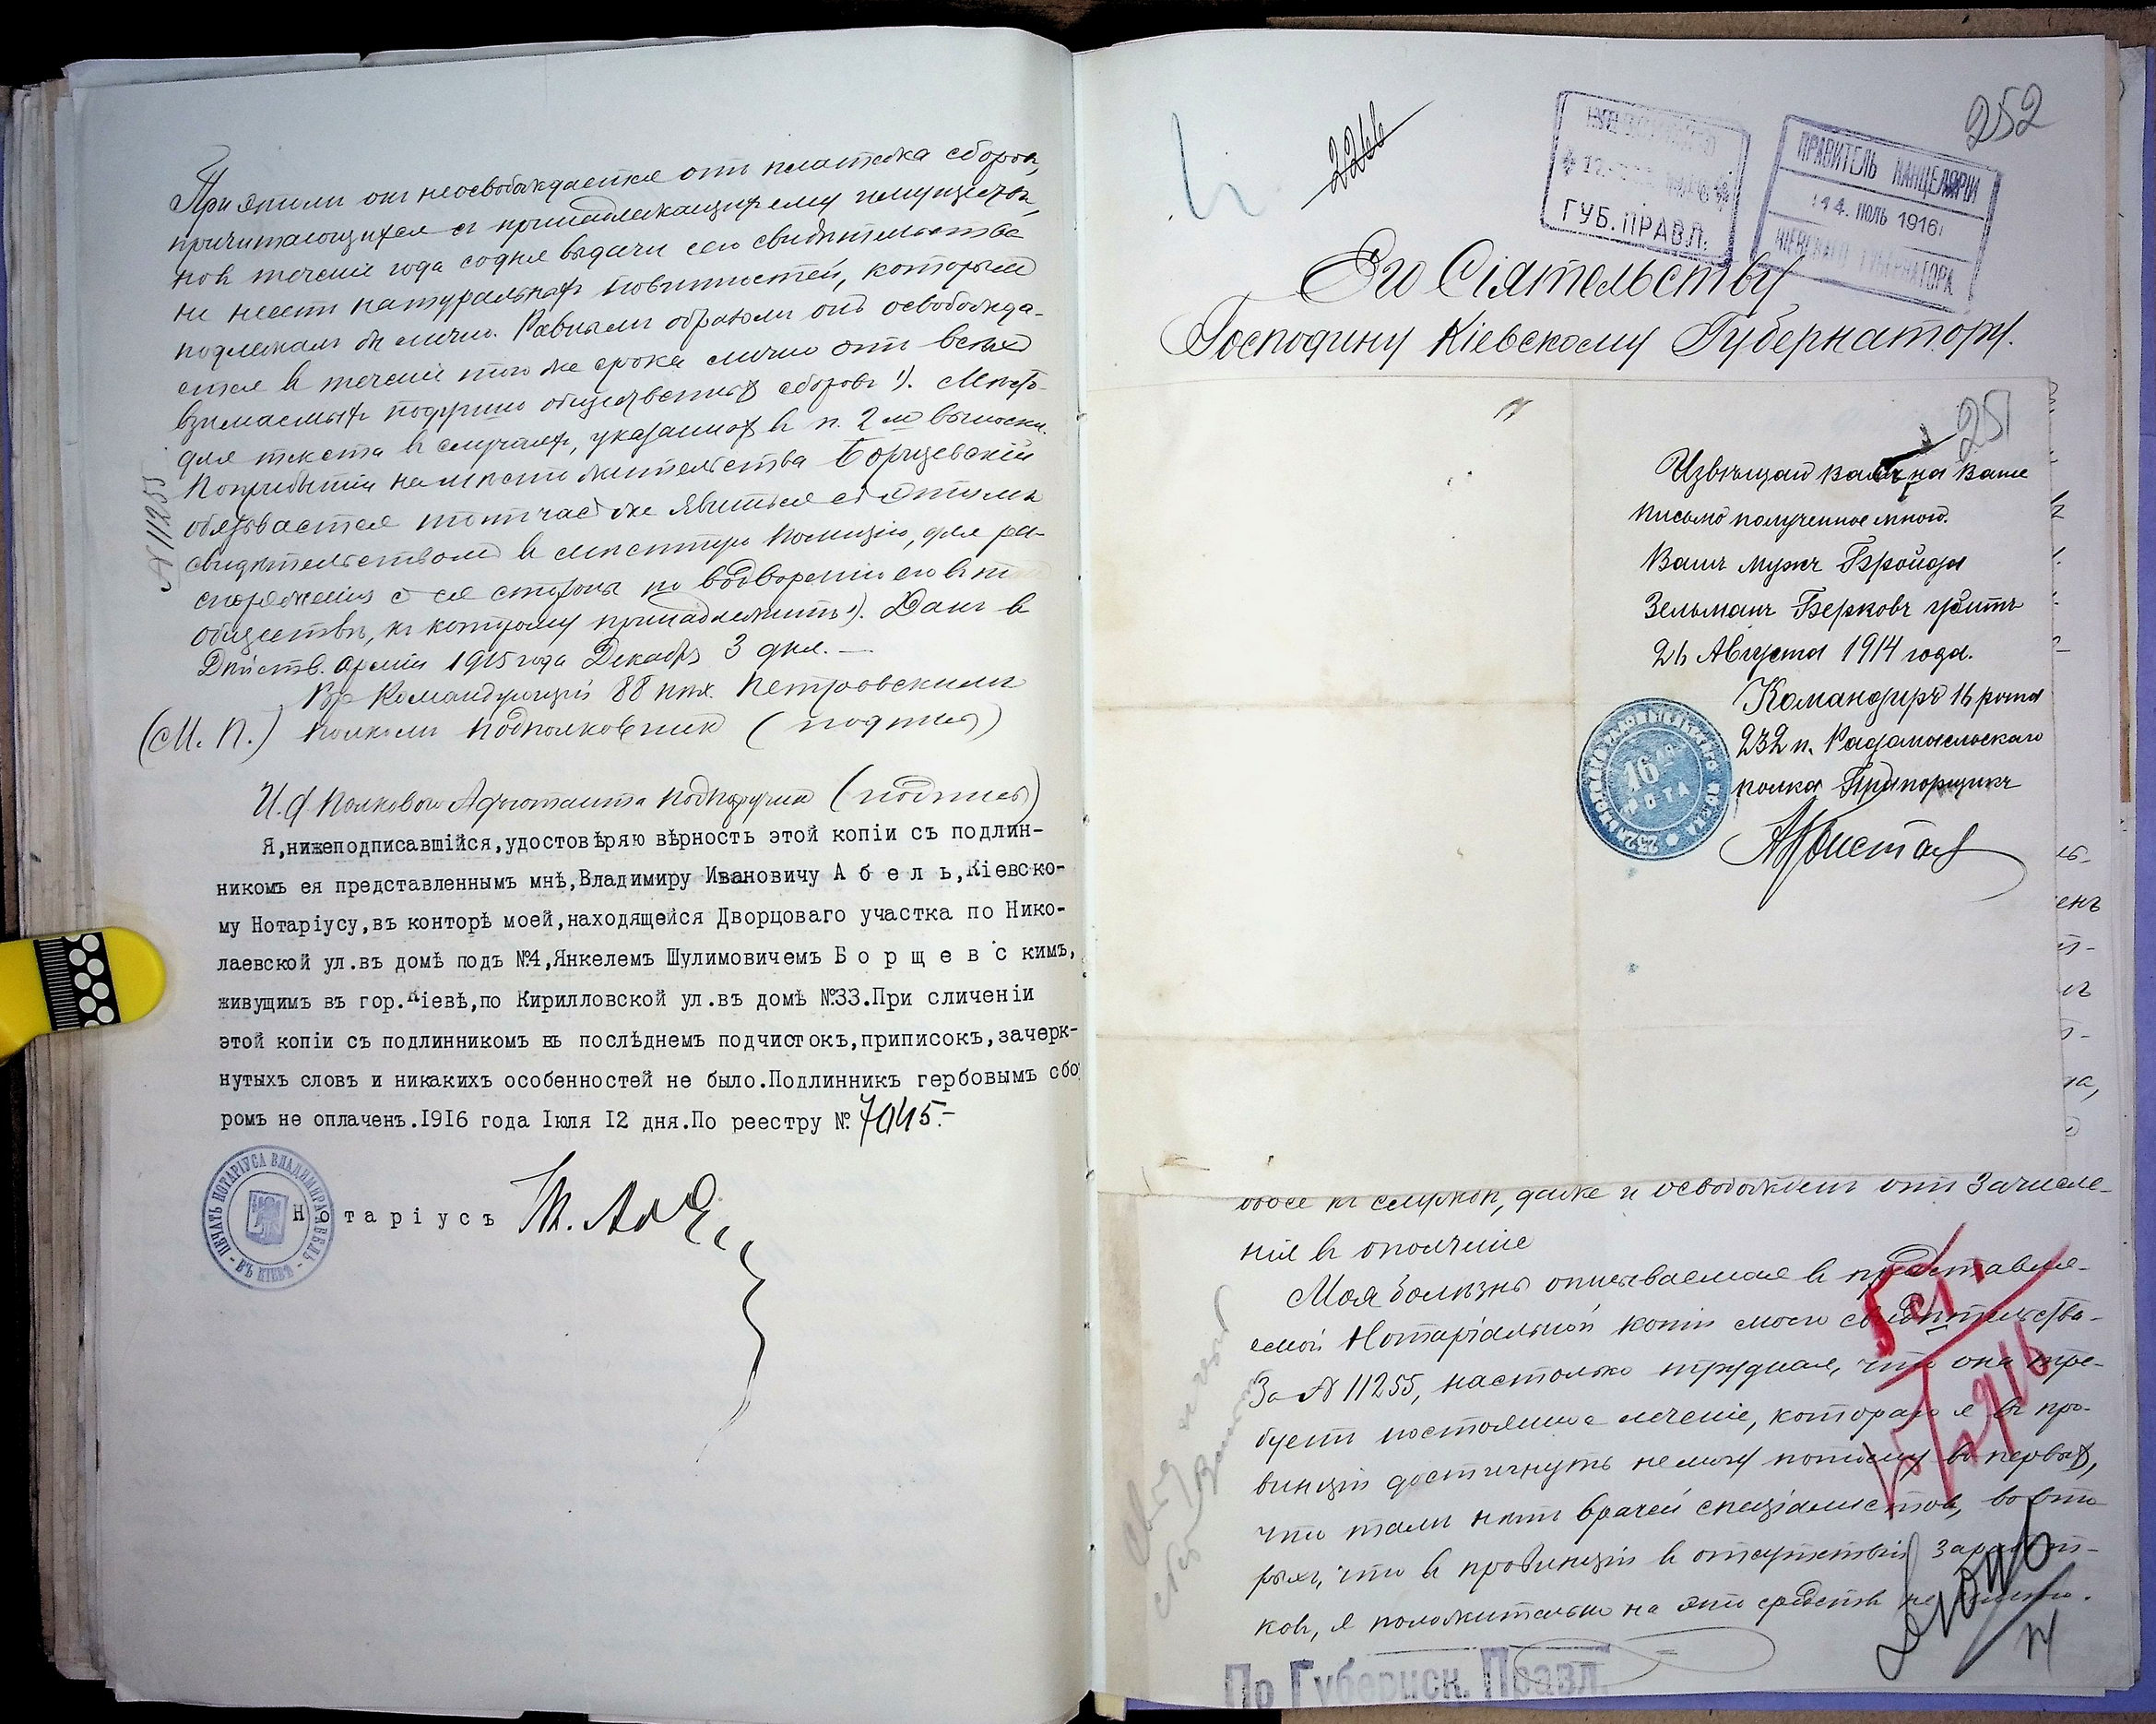 При этом он неосвобождается от платежа сборов,
причитающихся с принадлежащих ему имуществ,
но в течение года со дня выдачи сего свидетельства
не несет натуральных повинностей, которым
подлежал бы лично. Равным образом онъ освобожда-
ется в течении того же срока лично от всехъ
взимаемых подушно общественных сборовъ 1).
для текста в случаях, указанных в п. 2 м выноски.
По прибытии на место жительства Борщевский
обязывается тотчасъ же явиться съ этим
свидетельством в местную полицию, для ра-
споряжения с ее стороны по водворению его в т
общество, к которому принадлежитъ 1). Дан в
Действ. армии 1915 года Декабря 3 дня. —
Вр Командующий 88 пех. Петровским
(М. П.) полком Подполковник (подпись)
И. д. Полкового Адъютанта подпоручик (подпись)
№ 11255
Я,нижеподписавшійся,удостовѣряю вѣрность этой копіи съ подлин-
никомъ ея представленнымъ мнѣ,Владимиру Ивановичу А б е л ь,Кіевско-
му Нотаріусу,въ конторѣ моей,находящейся Дворцоваго участка по Нико-
лаевской ул.въ домѣ подъ №4,Янкелемъ Шулимовичемъ Б о р щ е в с кимъ,
живущимъ въ гор.Кіевѣ,по Кирилловской ул.въ домѣ №33.При сличеніи
этой копіи съ подлинникомъ въ послѣднемъ подчистокъ,приписокъ,зачерк-
нутыхъ словъ и никакихъ особенностей не было.Подлинникъ гербовымъ сбо
ромъ не оплаченъ.1916 года Іюля 12 дня.По реестру № 7045.-
Н таріусъ
ПЕЧАТЬ НОТАРІУСА ВЛАДИМИРА АБЕЛЬ - ВЪ КІЕВѢ -
252
2266
ГУБ. ПРАВЛ.
ПРАВИТЕЛЬ КАНЦЕЛЯРІИ
14. ІЮЛЬ 1916
КІЕВСКАГО ГУБЕРНАТОРА
Его Сіятельству
Господину Кіевскому Губернатору.
251
Извѣщаю вамъ на Ваше
письмо полученное мною.
Вашъ мужъ Бройде
Зельманъ Берковъ убитъ
26 Августа 1914 года.
Командиръ 16 роты
232 п. Радомысльскаго
полка Прапорщикъ
16
РОТА
ніе в ополчение
Моя болѣзнь описываемая в представляе-
емой Нотаріальной копіи моего свидѣтельства
За № 11255, настолько трудная, что она тре-
буетъ постоянное леченіе, котораго я въ про-
винціи достигнуть не могу потому во первых,
что там нѣтъ врачей спеціалистов, во вто
рых, что в провинціи в отсутствии заработ-
ков, я положительно на это средств не имею.
По Губернск. Правл.